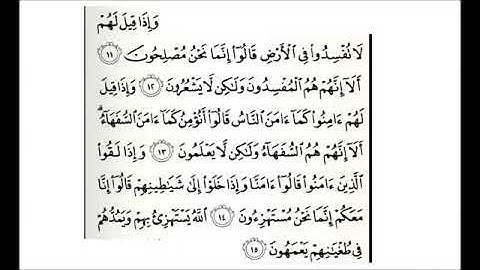 وَإِذَا قِيلَ لَهُمْ
لَا تُفْسِدُوا۟ فِى ٱلْأَرْضِ قَالُوٓا۟ إِنَّمَا نَحْنُ مُصْلِحُونَ ١١
أَلَآ إِنَّهُمْ هُمُ ٱلْمُفْسِدُونَ وَلَـٰكِن لَّا يَشْعُرُونَ ١٢ وَإِذَا قِيلَ
لَهُمْ ءَامِنُوا۟ كَمَآ ءَامَنَ ٱلنَّاسُ قَالُوٓا۟ أَنُؤْمِنُ كَمَآ ءَامَنَ ٱلسُّفَهَآءُ ۗ
أَلَآ إِنَّهُمْ هُمُ ٱلسُّفَهَآءُ وَلَـٰكِن لَّا يَعْلَمُونَ ١٣ وَإِذَا لَقُوا۟
ٱلَّذِينَ ءَامَنُوا۟ قَالُوٓا۟ ءَامَنَّا وَإِذَا خَلَوْا۟ إِلَىٰ شَيَـٰطِينِهِمْ قَالُوٓا۟ إِنَّا
مَعَكُمْ إِنَّمَا نَحْنُ مُسْتَهْزِءُونَ ١٤ ٱللَّهُ يَسْتَهْزِئُ بِهِمْ وَيَمُدُّهُمْ
فِى طُغْيَـٰنِهِمْ يَعْمَهُونَ ١٥